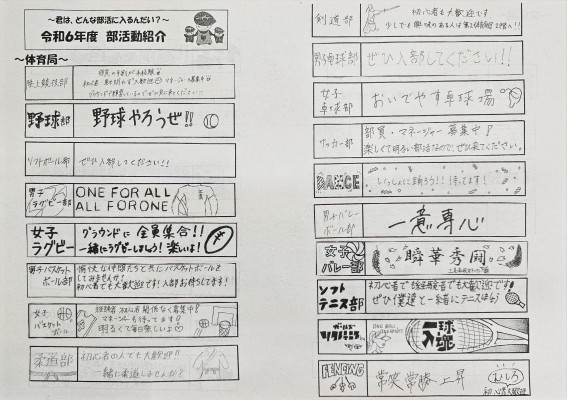 ～君は、どんな部活に入るんだい？～
令和6年度 部活動紹介
～体育局～
陸上競技部
野球部
野球やろうぜ!!
ソフトボール部
ぜひ入部してください!!
男子ラグビー部
ONE FOR ALL
ALL FOR ONE
女子ラグビー
グラウンドに全員集合!!
一緒にラグビーしましょう！楽しいよ！
男子バスケットボール部
愉快な仲間たちと共にバスケットボールを
してみませんか？
初心者でも大歓迎です！入部お待ちしてます！
女子バスケットボール
経験者 初心者 関係なく募集中！
マネージャーも待ってます！
明るくて毎日楽しいよ♡
柔道部
初心者の人でも大歓迎!!
一緒に柔道しませんか？
剣道部
初心者も大歓迎です
男子卓球部
ぜひ入部してください!!
女子卓球部
おいでやす卓球場
サッカー部
部員・マネージャー募集中！
楽しくて明るい部活なので、ぜひ来てください。
DANCE
いっしょに踊ろう!! 待ってます！
男子バレーボール部
一意専心
女子バレー部
瞬華秀闘。
ソフトテニス部
初心者でも経験者でも大歓迎です
ぜひ僕達と一緒にテニスしよう
ガールズソフトテニス
ONE BALL
一球入魂
FENCING
常笑 常勝 上昇
むしろ
初心者大歓迎